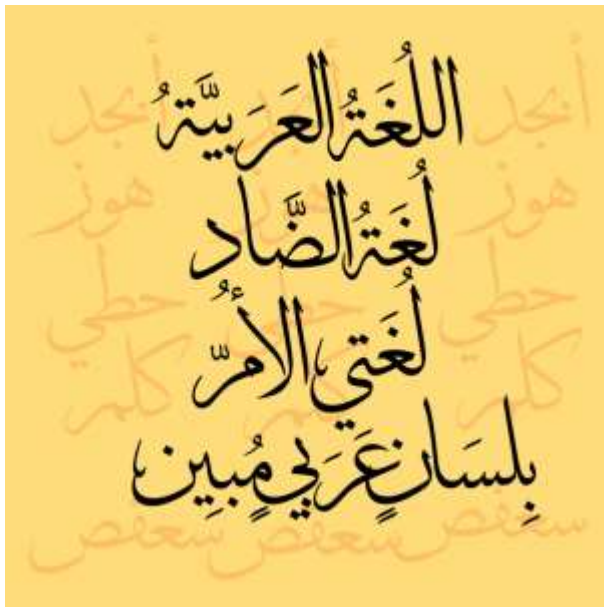 اللُغَةُ العَرَبِيَّةُ
لُغَةُ الضَّاد
لُغَتي الأمُّ
بِلِسَانٍ عَرَبيٍ مُبِين
أبجد أبجد أبجد
هوز هوز هوز
حطي حطي حطي
كلمن كلمن كلمن
سعفص سعفص سعفص